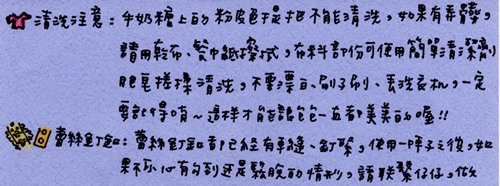 清洗注意：牛奶糖上的粉皮色是把不能清洗，如果有弄髒，
請用乾布、餐巾紙擦拭，布料部份可使用簡單清潔劑
肥皂搓揉清洗，不要漂白、刷子刷、丟洗衣机，一定
要記得唷～這樣才能讓包包一直都美美的喔!!
蕾絲釦：蕾絲釦都已經有車縫、釘緊，使用一陣子之後，如
果不小心有勾到還是鬆脫的情形，請聯繫仔仔，做